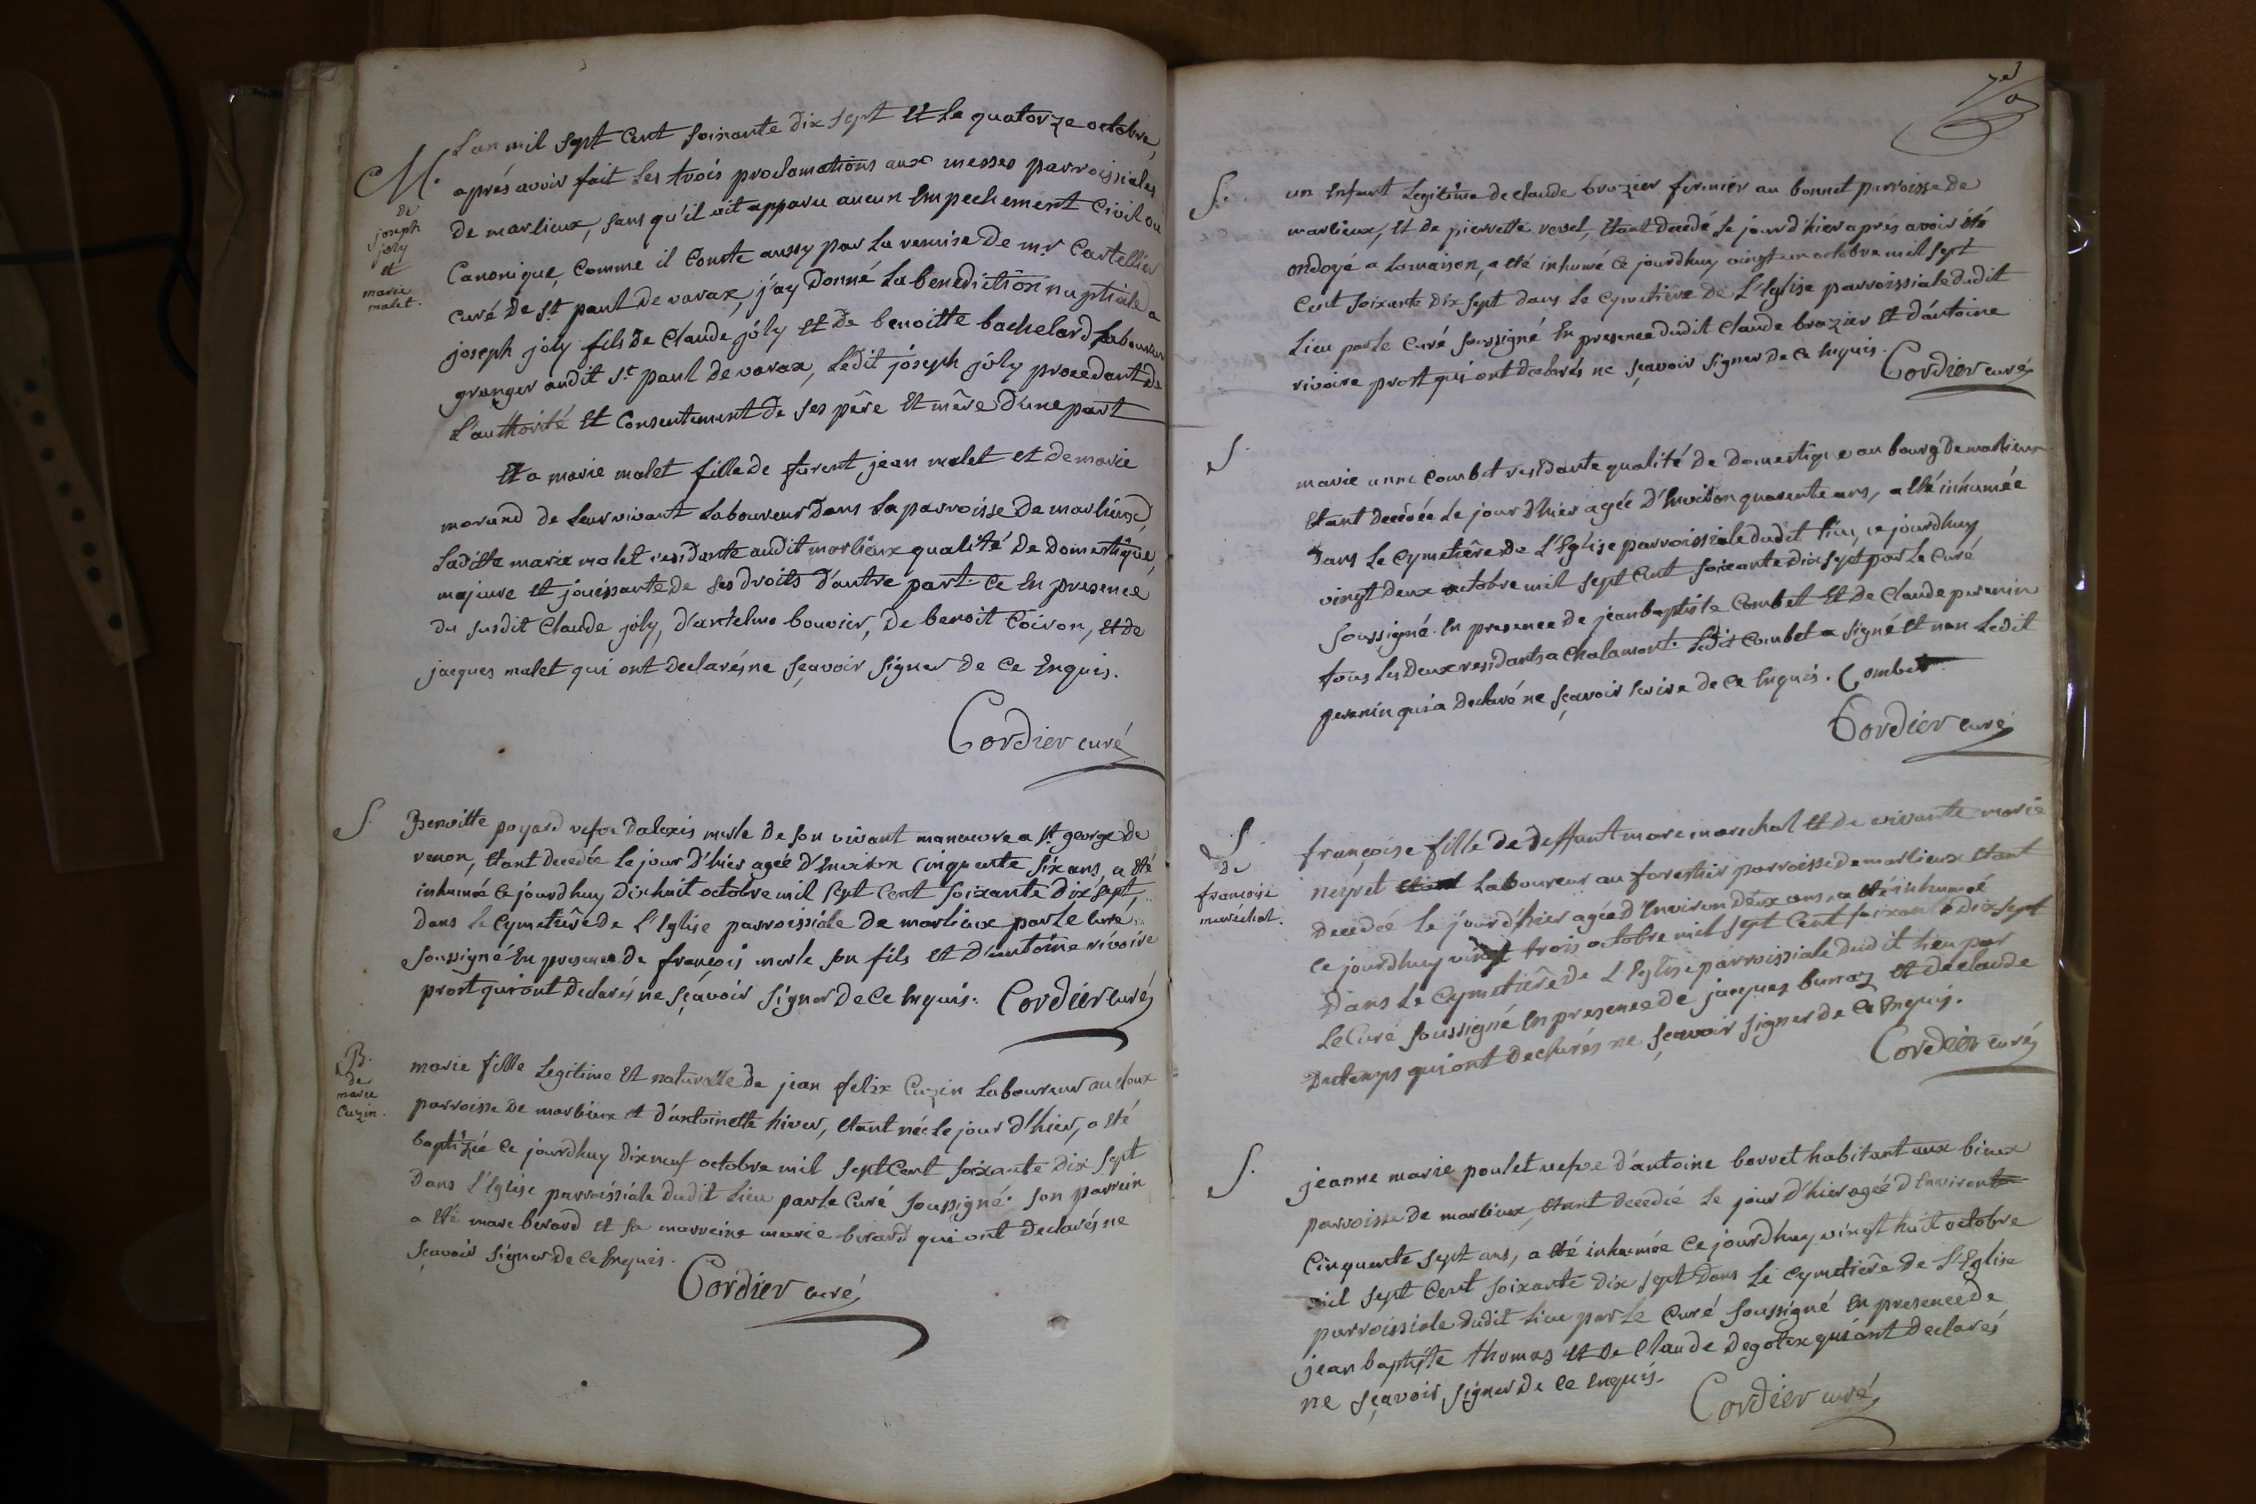 M.
de
joseph
joly
et
marie
malet.
L'an mil sept cent soixante dix sept et le quatorze octobre,
aprés avoir fait les trois proclamations aux messes parroissiales
de marlieux, sans qu'il ait apparu aucun empechement civil ou
canonique, comme il conste aussy par la remise de mr. Cartellier
curé de st. paul de varax, j'ay donné la benediction nuptiale a
joseph joly fils de Claude joly et de benoitte bachelard laboureur
granger audit st. paul de varax, ledit joseph joly procedant de
l'authorité et consentement de ses pêre et mêre d'une part
Et a marie malet fille de furent jean malet et de marie
morand de leur vivant laboureur dans la parroisse de marlieux,
laditte marie malet residante audit marlieux qualité de domestique,
majeure et jouissante de ses droits d'autre part. ce en presence
du susdit Claude joly, d'antelme bouvier, de benoit Coiron, et de
jacques malet qui ont declarés ne sçavoir signer de ce enquis.
Cordier curé
S.
Benoitte poyard vefve d'alexis merle de son vivant manoeuvre a st. george de
renon, etant decedée le jour d'hier agée d'environ cinquante six ans, a eté
inhumée ce jourdhuy dix huit octobre mil sept cent soixante dix sept,
dans le cymetiêre de l'Eglise parroissiale de marlieux par le curé
soussigné en presence de françois merle son fils et d'antoine rivoire
prost qui ont declarés ne sçavoir signer de ce enquis. Cordier curé
B.
de
marie
Cuzin.
marie fille legitime et naturelle de jean felix Cuzin laboureur au cloux
parroisse de marlieux et d'antoinette hiver, etant née le jour d'hier, a eté
baptizée ce jourdhuy dix neuf octobre mil sept cent soixante dix sept
dans l'Eglise parroissiale dudit lieu par le curé soussigné. son parrein
a eté marc berard et sa marreine marie berard qui ont declarés ne
sçavoir signer de ce enquis.
Cordier curé
S.
un enfant legitime de claude brazier fermier au bonnet parroisse de
marlieux, et de pierrette revel, etant decedé le jour d'hier aprés avoir été
ondoyé a la maison, a eté inhumé ce jourdhuy vingt un octobre mil sept
cent soixante dix sept dans le cymetiêre de l'Eglise parroissiale dudit
lieu par le curé soussigné en presence dudit claude brazier et d'antoine
rivoire prost qui ont declarés ne sçavoir signer de ce enquis. Cordier curé
S.
marie anne combet residante qualité de domestique au bourg de marlieux
etant decedée le jour d'hier agée d'environ quarente ans, a eté inhumée
dans le cymetiêre de l'Eglise parroissiale dudit lieu, ce jourdhuy
vingt deux octobre mil sept cent soixante dix sept par le curé
soussigné. en presence de jean baptiste Combet et de Claude perenin
tous les deux residants a chalamont. ledit combet a signé et non ledit
perenin qui a declaré ne sçavoir ecrire de ce enquis. Combet
Cordier curé
S.
de
francoise
maréchal.
françoise fille de deffunt marc marechal et de vivante marie
neyret laboureur au forestier parroisse de marlieux etant
decedée le jour d'hier agée d'environ deux ans, a eté inhumée
ce jourdhuy vingt trois octobre mil sept cent soixante dix sept
dans le cymetiêre de l'Eglise parroissiale dudit lieu par
le curé soussigné en presence de jacques burraz et de claude
dutemps qui ont declarés ne sçavoir signer de ce enquis.
Cordier curé
S.
jeanne marie poulet vefve d'antoine borret habitant aux bieux
parroisse de marlieux, etant decedée le jour d'hier agée d'environ
cinquante sept ans, a eté inhumée ce jourdhuy vingt huit octobre
mil sept cent soixante dix sept dans le cymetiêre de l'Eglise
parroissiale dudit lieu par le curé soussigné en presence de
jean baptiste thomas et de Claude degolex qui ont declarés
ne sçavoir signer de ce enquis.
Cordier curé